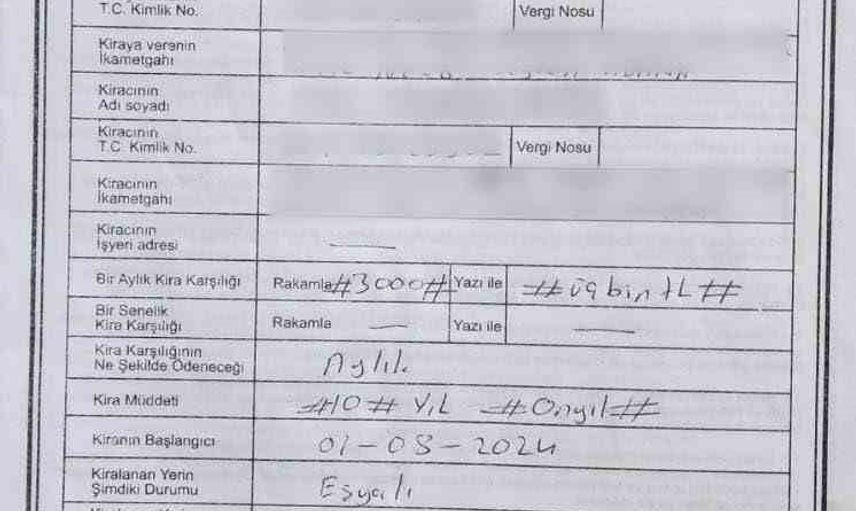 T.C. Kimlik No.
Vergi Nosu
Kiraya verenin
İkametgahı
Kiracının
Adı soyadı
Kiracının
T.C. Kimlik No.
Vergi Nosu
Kiracının
İkametgahı
Kiracının
İşyeri adresi
Bir Aylık Kira Karşılığı
Rakamla #3000#
Yazı ile
# üç bin tL #
Bir Senelik
Kira Karşılığı
Rakamla
Yazı ile
Kira Karşılığının
Ne Şekilde Ödeneceği
Aylık
Kira Müddeti
#10# YIL #Onyıl#
Kiranın Başlangıcı
01-08-2024
Kiralanan Yerin
Şimdiki Durumu
Eşyalı